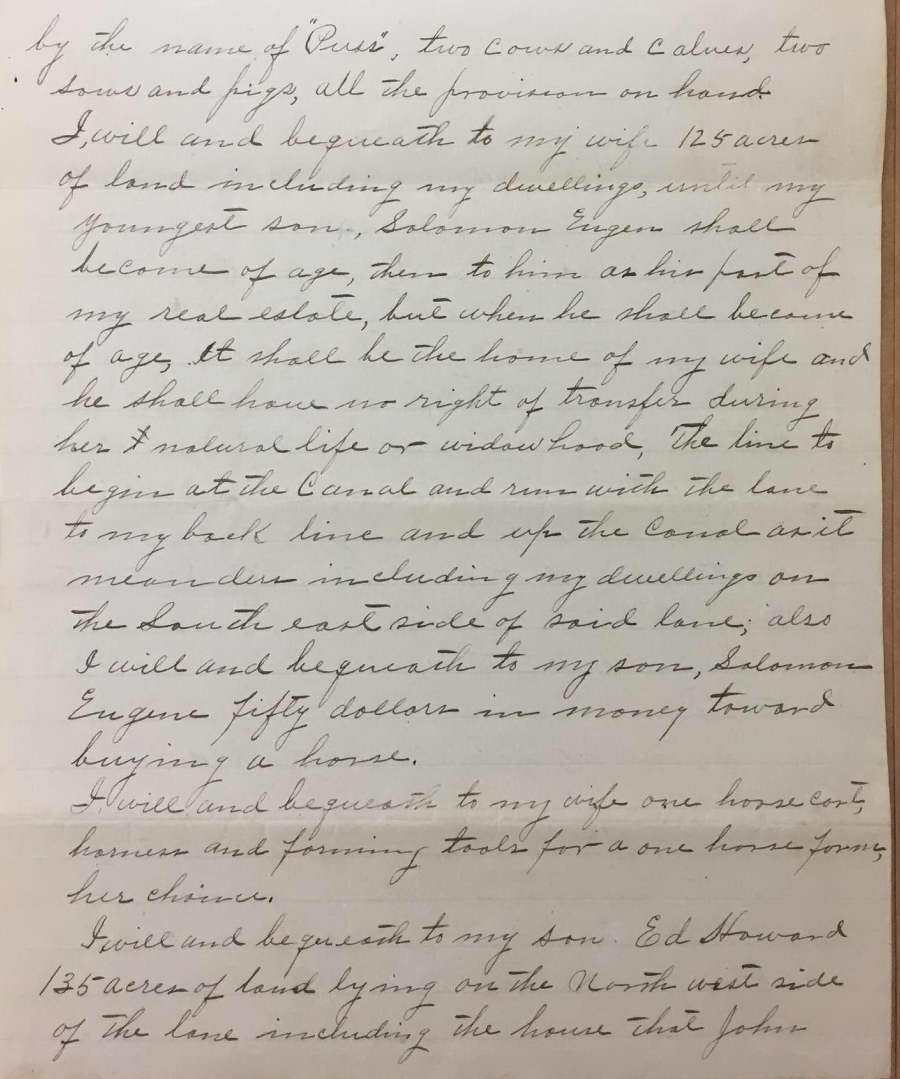 by the name of "Puss", two cows and calves, two
sows and pigs, all the provision on hand.
I, will and bequeath to my wife 125 acres
of land including my dwellings, until my
youngest son, Solomon Eugen shall
become of age, then to him as his part of
my real estate, but when he shall become
of age, it shall be the home of my wife and
he shall have no right of transfer during
her natural life or widowhood, The line to
begin at the Canal and run with the lane
to my back line and up the Canal as it
meanders including my dwellings on
the South east side of said lane; also
I will and bequeath to my son, Solomon
Eugene fifty dollars in money toward
buying a horse.
I will and bequeath to my wife one horse cart,
harness and farming tools for a one horse farm,
her choice.
I will and bequeath to my son Ed Howard
135 acres of land lying on the North west side
of the lane including the house that John